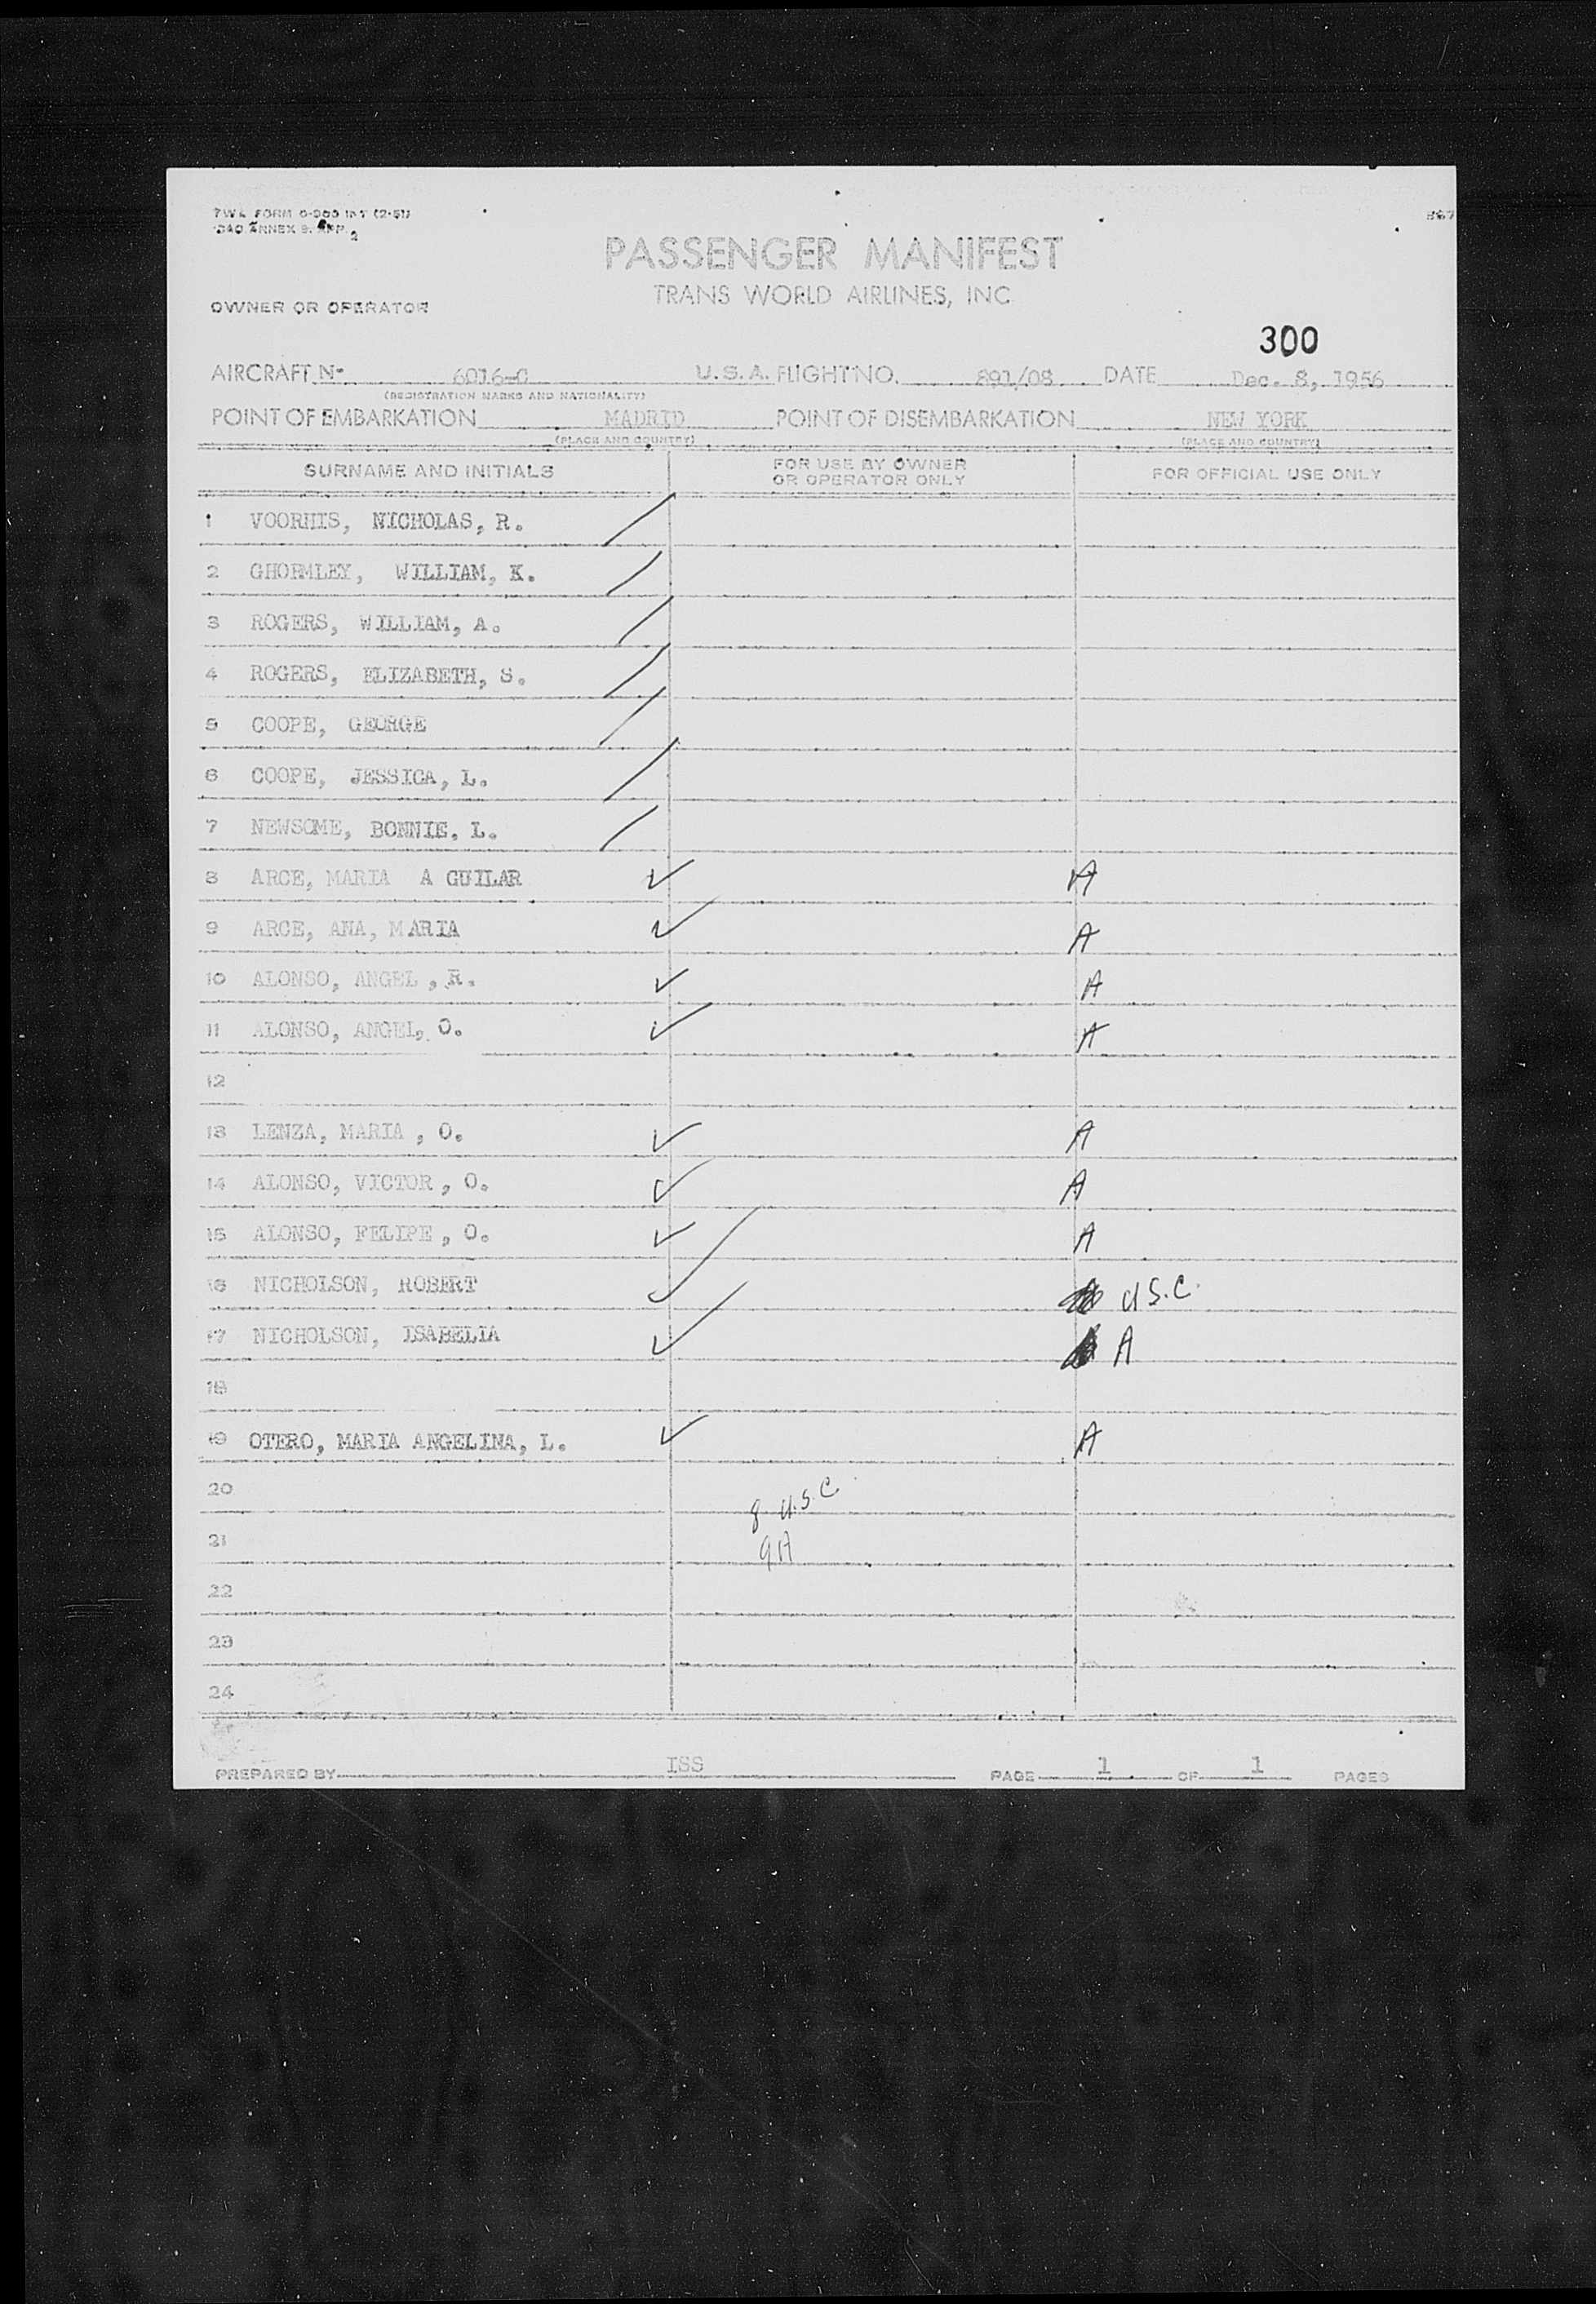 TWA FORM O-900 INT (2-51)
ICAO ANNEX 9, APP. 2
PASSENGER MANIFEST
TRANS WORLD AIRLINES, INC
OWNER OR OPERATOR
300
AIRCRAFT N- 6016-C U.S.A. FLIGHT NO. 891/08 DATE Dec. 8, 1956
(REGISTRATION MARKS AND NATIONALITY)
POINT OF EMBARKATION MADRID POINT OF DISEMBARKATION NEW YORK
(PLACE AND COUNTRY) (PLACE AND COUNTRY)
SURNAME AND INITIALS FOR USE BY OWNER OR OPERATOR ONLY FOR OFFICIAL USE ONLY
1 VOORHIS, NICHOLAS, R.
2 GHORMLEY, WILLIAM, K.
3 ROGERS, WILLIAM, A.
4 ROGERS, ELIZABETH, S.
5 COOPE, GEORGE
6 COOPE, JESSICA, L.
7 NEWSOME, BONNIE, L.
8 ARCE, MARIA A GUILAR A
9 ARCE, ANA, MARIA A
10 ALONSO, ANGEL , R. A
11 ALONSO, ANGEL, O. A
12
13 LENZA, MARIA , O. A
14 ALONSO, VICTOR , O. A
15 ALONSO, FELIPE , O. A
16 NICHOLSON, ROBERT U.S.C.
17 NICHOLSON, ISABELIA A
18
19 OTERO, MARIA ANGELINA, L. A
20 8 U.S.C.
21 9 A
22
23
24
PREPARED BY ISS PAGE 1 OF 1 PAGES